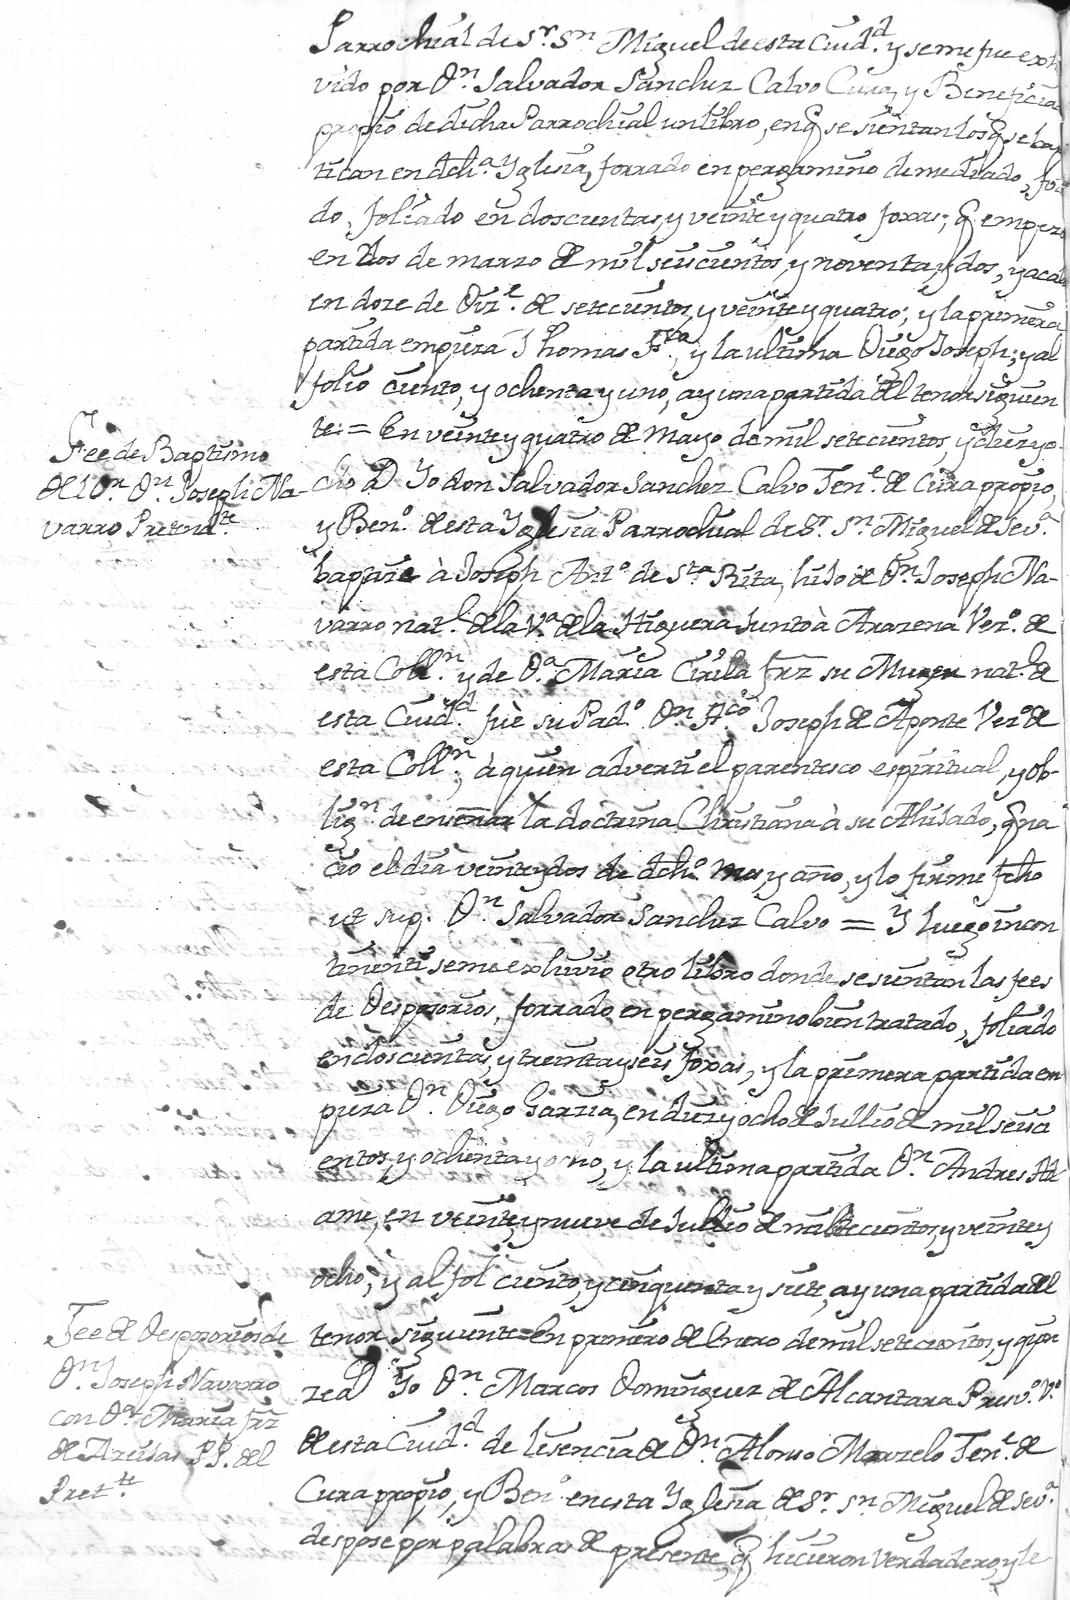 Parrochial de Sr. Sn. Miguel de esta Ciudd. y se me fue exhi
vido por Dn. Salvador Sanchez Calvo Cura, y Beneficia
propio de dicha Parrochial un libro, en q̃ se sientan los q̃ se bap
tican en dcha. Yglesia, forrado en pergamino de mediado,
do, foliado en doscientas, y veinte y quatro foxas; q̃ empeza
en dos de marzo de mil seiscientos, y noventa, y dos, y acaba
en doze de Dize. de setecientos, y veinte y quatro; y la primera
partida empieza Thomas Fra., y la ultima Diego Joseph; y al
folio ciento, y ochenta y uno, ay una partida del tenor siguien
te: = En veinte y quatro de Mayo de mil setecientos, y diez y o-
cho aD Yo don Salvador Sanchez Calvo Tene. de Cura propio,
y Beno. de esta Yglesia Parrochial de Sr. Sn. Miguel de Seva.
baptize à Joseph Anto. de Sta. Rita, hijo de Dn. Joseph Na-
varro natl. de la Va. de la Higuera junto à Arazena Vezo. de
esta Colln. y de Da. Maria Cirila frz su Muger natl. de
esta Ciudd. fuè su Pado. Dn. Fco. Joseph de Aponte Vezo. de
esta Colln.; à quien adverti el parentesco espiritual, y ob-
lign. de enseñar la doctrina Christiana à su Ahijado, q̃ na
cio el dia veinte y dos de dcho. mes, y año, y lo firme fcho
ut sup. Dn. Salvador Sanchez Calvo = Y luego incon
tinenti se me exhivio otro libro donde se sientan las fees
de Desposorios, forrado en pergamino bien tratado, foliado
en doscientas, y treinta y seis foxas, y la primera partida em
pieza Dn. Diego Garzia, en diez y ocho de Jullio de mil seisci
entos, y ochenta y ocho, y la ultima partida Dn. Andres Ad
ame, en veinte y nueve de Jullio de mil setecientos, y veinte y
ocho; y al fol. ciento, y cinquenta y siete, ay una partida del
tenor siguiente = En primero de Enero de mil setecientos, y quin
ze aD Yo Dn. Marcos Dominguez de Alcantara Presvo. Vo.
de esta Ciudd. de lisencia de Dn. Alonso Marzelo Tene. de
Cura propio, y Beno. en esta Yglesia de Sr. Sn. Miguel de Seva.
despose por palabras de presente, q̃ hicieron verdadero, y le
Fee de Baptismo
del Dn. Dn. Joseph Na-
varro Pretendte.
Fee de Desposorios de
Dn. Joseph Navarro
con Da. Maria frz
de Arcisas PP. del
Prette.